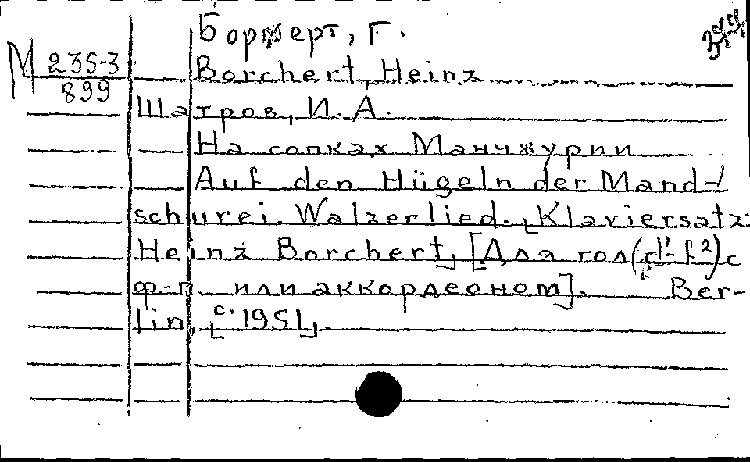 Борхерт, Г.
М 235-3
899
Borchert, Heinz
Шатров, И. А.
На сопках Манчжурии
Auf den Hügeln der Mand-
schurei. Walzerlied. [Klaviersatz:
Heinz Borchert]. [Для гол(d¹-f²)с
ф-п. или аккордеоном]. Ber-
lin, [c. 1951].